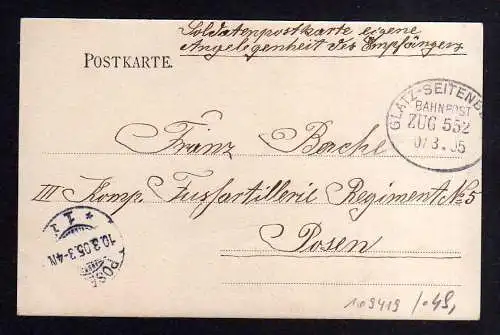 Soldatenpostkarte eigene
Angelegenheit des Empfängers
POSTKARTE.
GLATZ-SEITENB
BAHNPOST
ZUG 552
07.3.05
Franz
III Komp. Fussartillerie Regiment No 5
Posen
POSE
10.3.05.3-4N
* 1 1
109419 /.45,